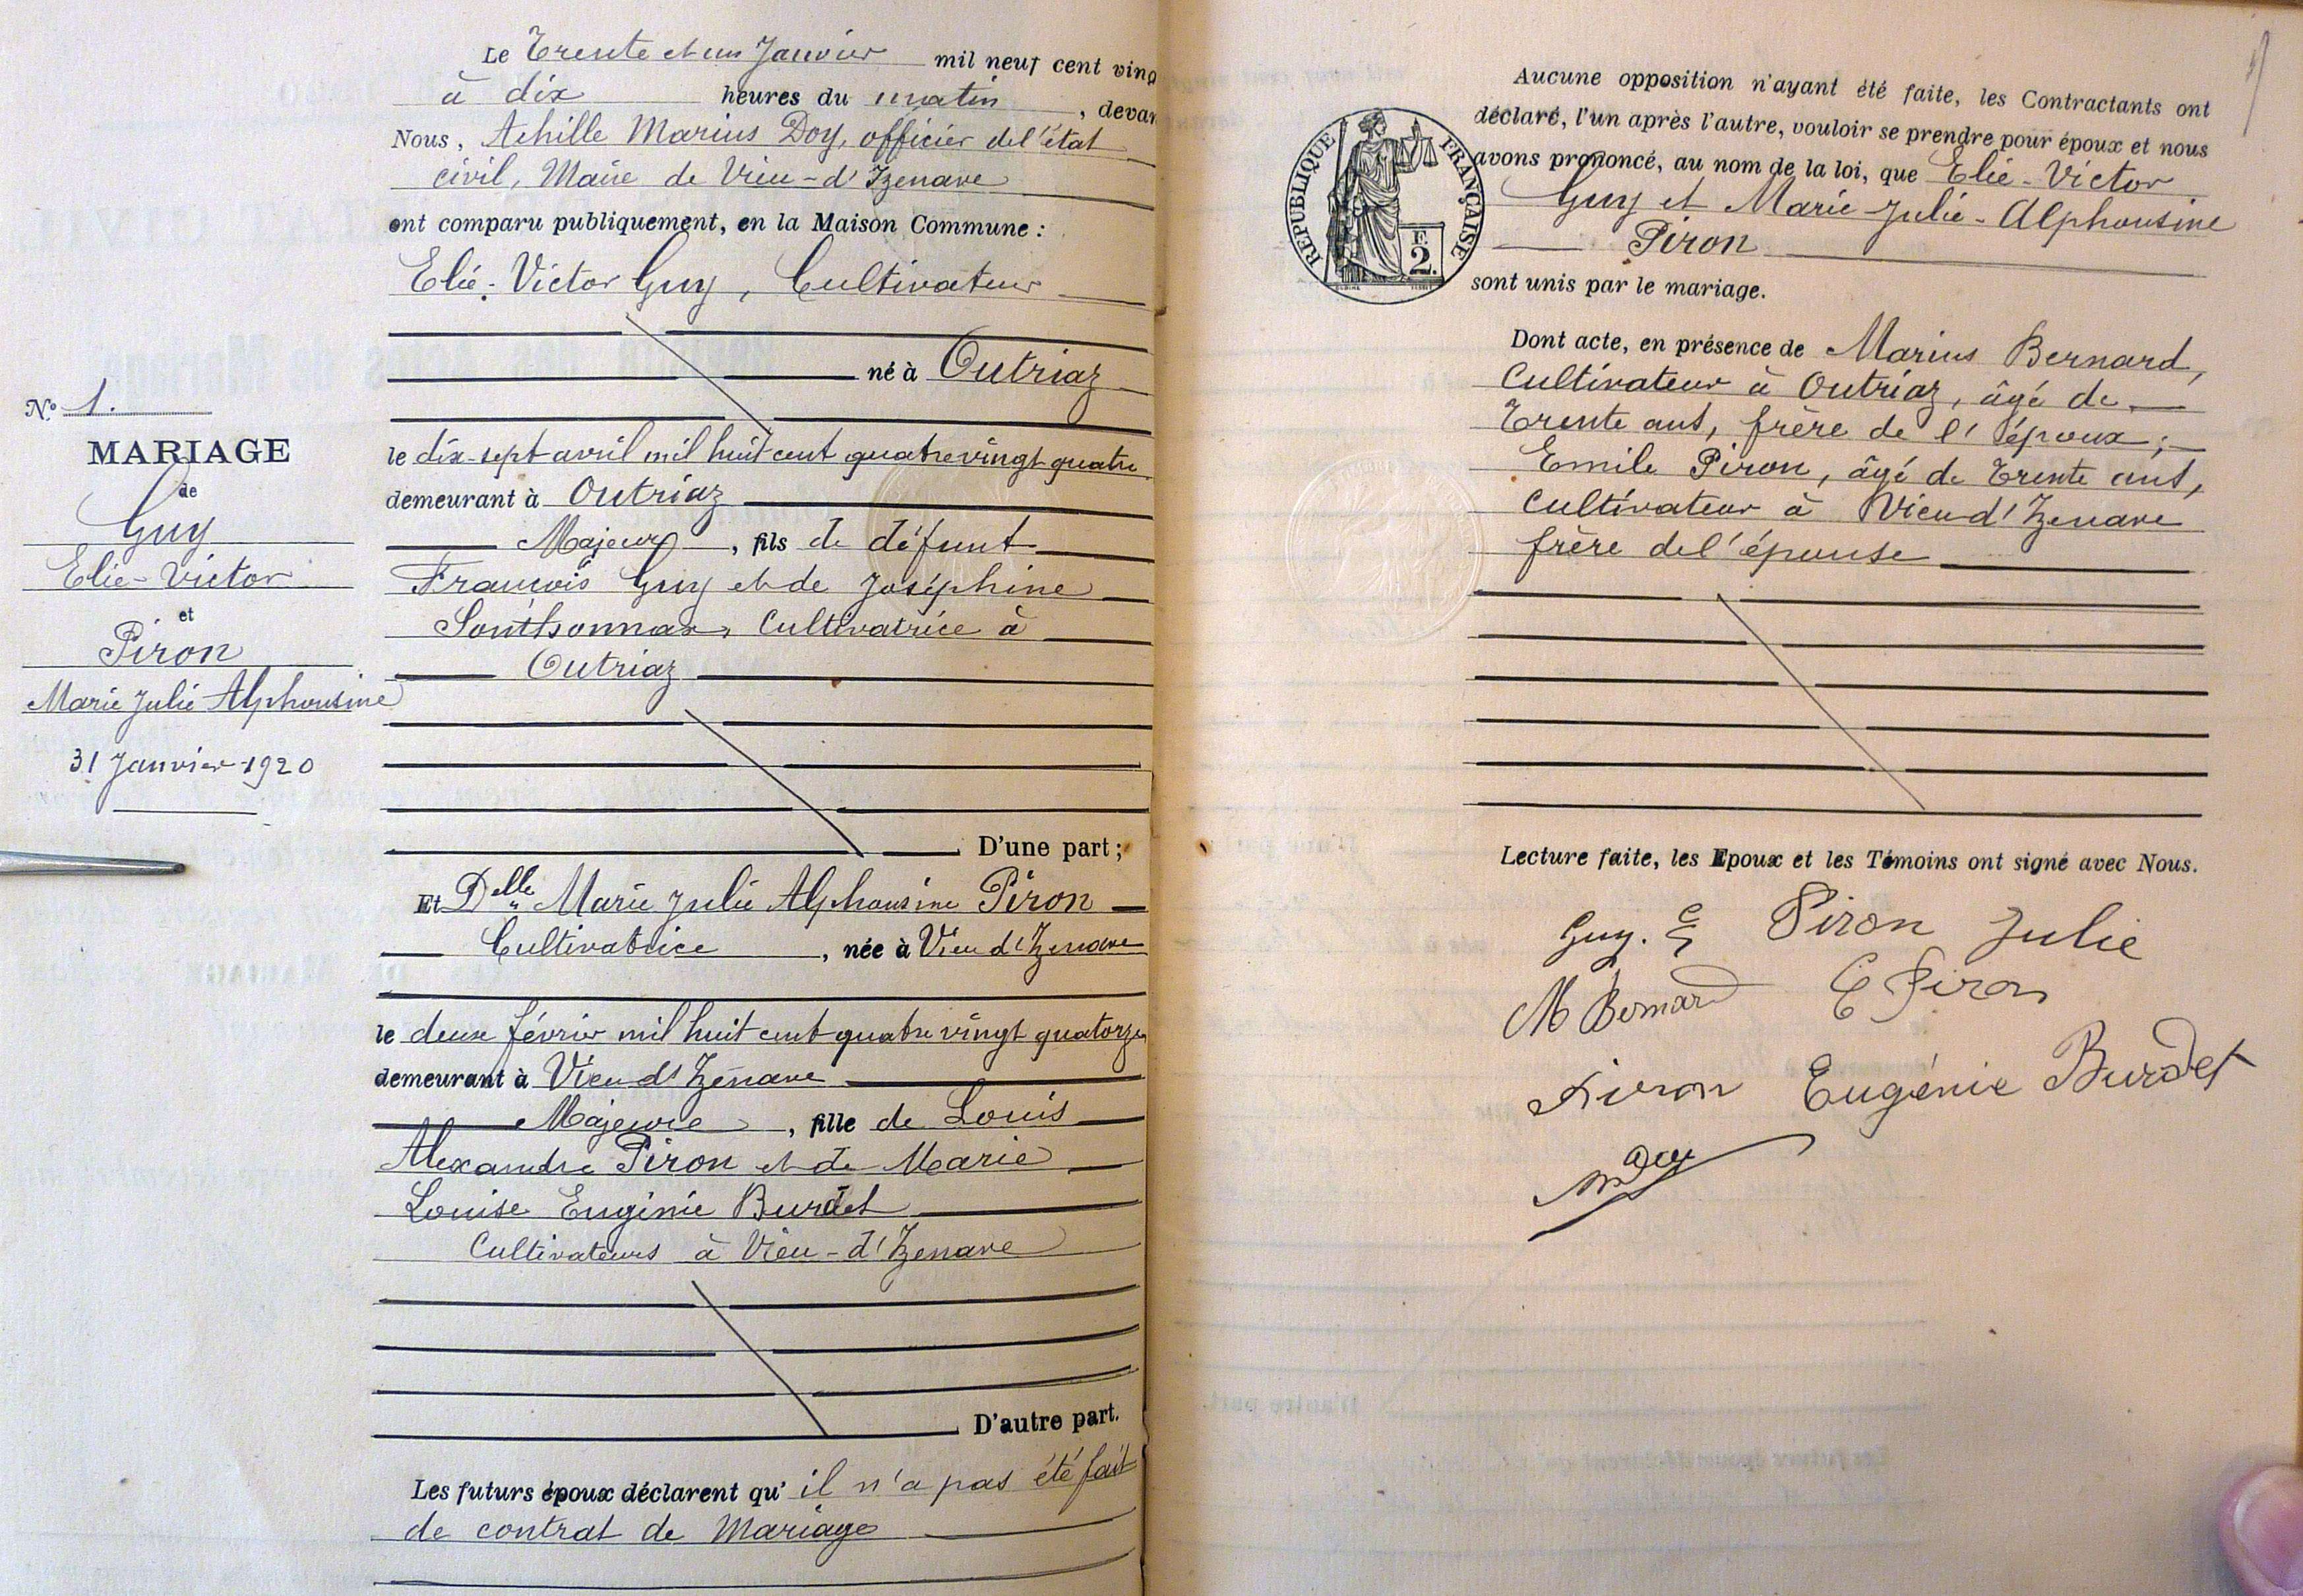 Le Trente et un Janvier mil neuf cent ving
à dix heures du matin, devan
Nous, Achille Marius Doy, officier de l'état
civil, Maire de Vieu-d'Izenave
ont comparu publiquement, en la Maison Commune :
Elie-Victor Guy, Cultivateur
né à Outriaz
le dix-sept avril mil huit cent quatre vingt quatre
demeurant à Outriaz
Majeur, fils de défunt
François Guy et de Joséphine
Sonthonnax, Cultivatrice à
Outriaz
D'une part ;
N° 1.
MARIAGE
de
Guy
Elie-Victor
et
Piron
Marie Julie Alphonsine
31 Janvier 1920
Et Delle Marie Julie Alphonsine Piron
Cultivatrice, née à Vieu d'Izenave
le deux février mil huit cent quatre vingt quatorze
demeurant à Vieu d'Izenave
Majeure, fille de Louis
Alexandre Piron et de Marie
Louise Eugénie Burdet
Cultivateurs à Vieu-d'Izenave
D'autre part.
Les futurs époux déclarent qu'il n'a pas été fait
de contrat de Mariage
Aucune opposition n'ayant été faite, les Contractants ont
déclaré, l'un après l'autre, vouloir se prendre pour époux et nous
avons prononcé, au nom de la loi, que Elie-Victor
Guy et Marie-Julie-Alphonsine
Piron
sont unis par le mariage.
RÉPUBLIQUE FRANÇAISE
F.
2.
Dont acte, en présence de Marius Bernard,
Cultivateur à Outriaz, âgé de
Trente ans, frère de l'époux ;
Emile Piron, âgé de Trente ans,
Cultivateur à Vieu d'Izenave
frère de l'épouse
Lecture faite, les Epoux et les Témoins ont signé avec Nous.
Guy. E Piron Julie
M Bernard E Piron
Piron Eugénie Burdet